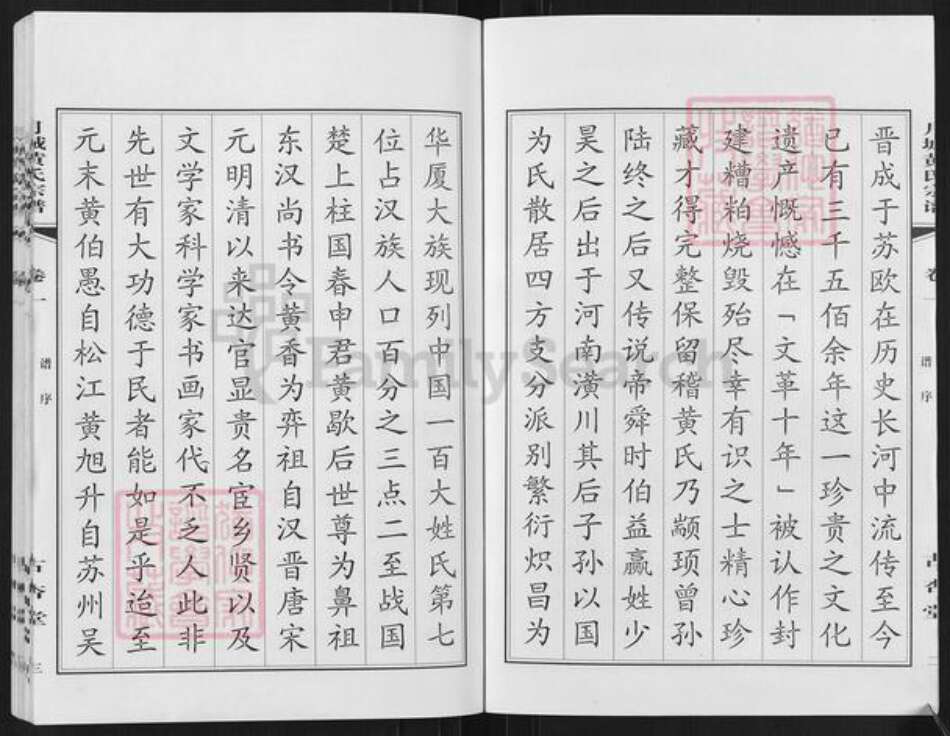 晋成于苏欧在历史长河中流传至今
已有三千五佰余年这一珍贵之文化
遗产慨憾在「文革十年」被认作封
建糟粕烧毁殆尽幸有识之士精心珍
藏才得完整保留稽黄氏乃颛顼曾孙
陆终之后又传说帝舜时伯益赢姓少
昊之后出于河南潢川其后子孙以国
为氏散居四方支分派别繁衍炽昌为
谱序
华厦大族现列中国一百大姓氏第七
位占汉族人口百分之三点二至战国
楚上柱国春申君黄歇后世尊为鼻祖
东汉尚书令黄香为弈祖自汉晋唐宋
元明清以来达官显贵名宦乡贤以及
文学家科学家书画家代不乏人此非
先世有大功德于民者能如是乎迨至
元末黄伯愚自松江黄旭升自苏州吴
城黄氏宗谱
卷一
谱序
古杏堂
三
FamilySearch